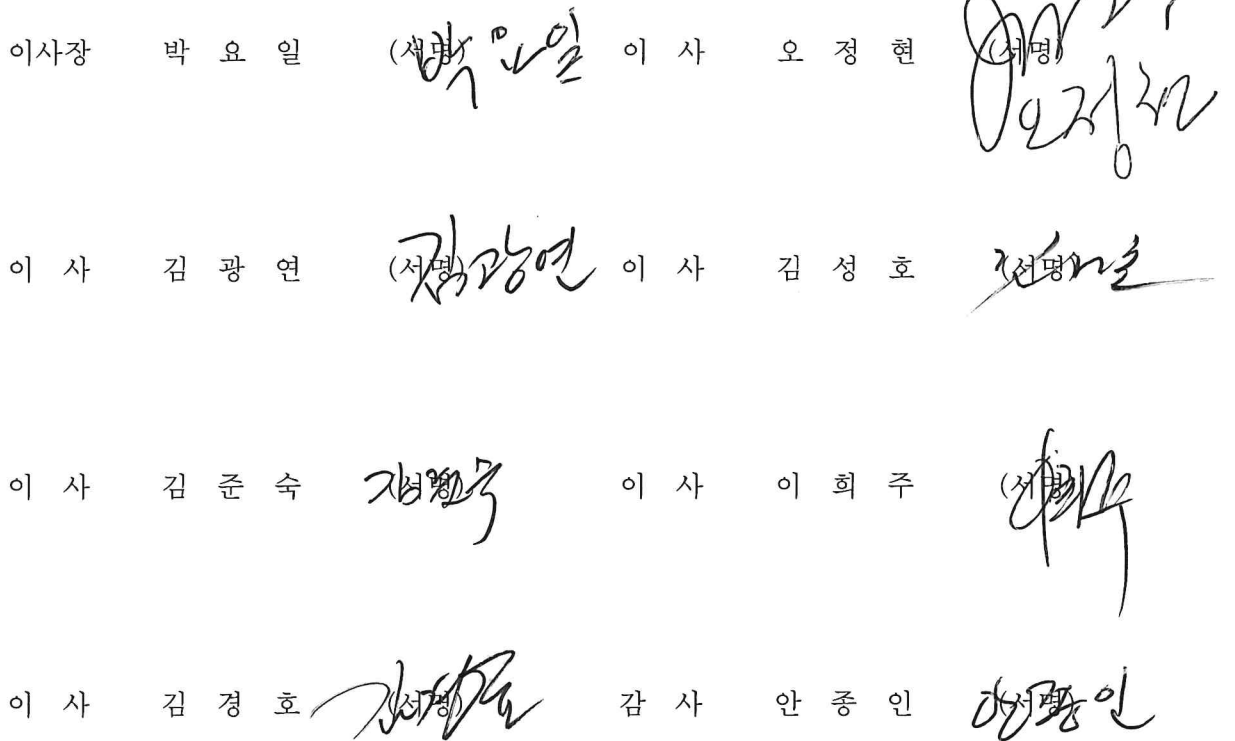 이사장 박 요 일 (서명) 박요일 이 사 오 정 현 (서명) 오정현
이 사 김 광 연 (서명) 김광연 이 사 김 성 호 (서명)
이 사 김 준 숙 (서명) 김준숙 이 사 이 희 주 (서명) 이희주
이 사 김 경 호 (서명) 감 사 안 종 인 (서명) 안종인